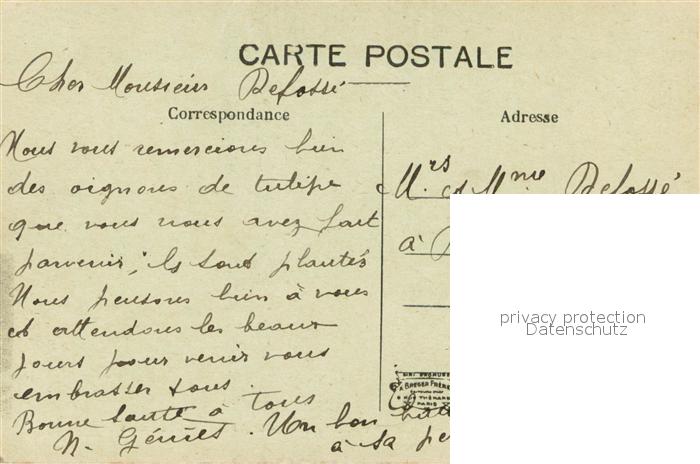 CARTE POSTALE
Cher Monsieur Defossé
Correspondance
Adresse
Nous vous remercions bien
des oignons de tulipe
que vous nous avez fait
parvenir, ils sont plantés
Nous pensons bien à vous
et attendons les beaux
jours pour venir vous
embrasser tous.
Bonne Santé à tous
N. Un bon
à sa
Mrs et Mme Defossé
à
privacy protection
Datenschutz
BREGER FRÈRES
PARIS